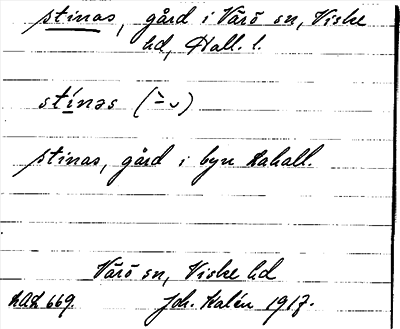 stinas, gård i Värö sn, Viske
hd, Hall. l.
stínəs (⏑̀⏑)
stinas, gård i byn Kahall.
Värö sn, Viske hd
LAL 669. Joh. Kalén 1917.